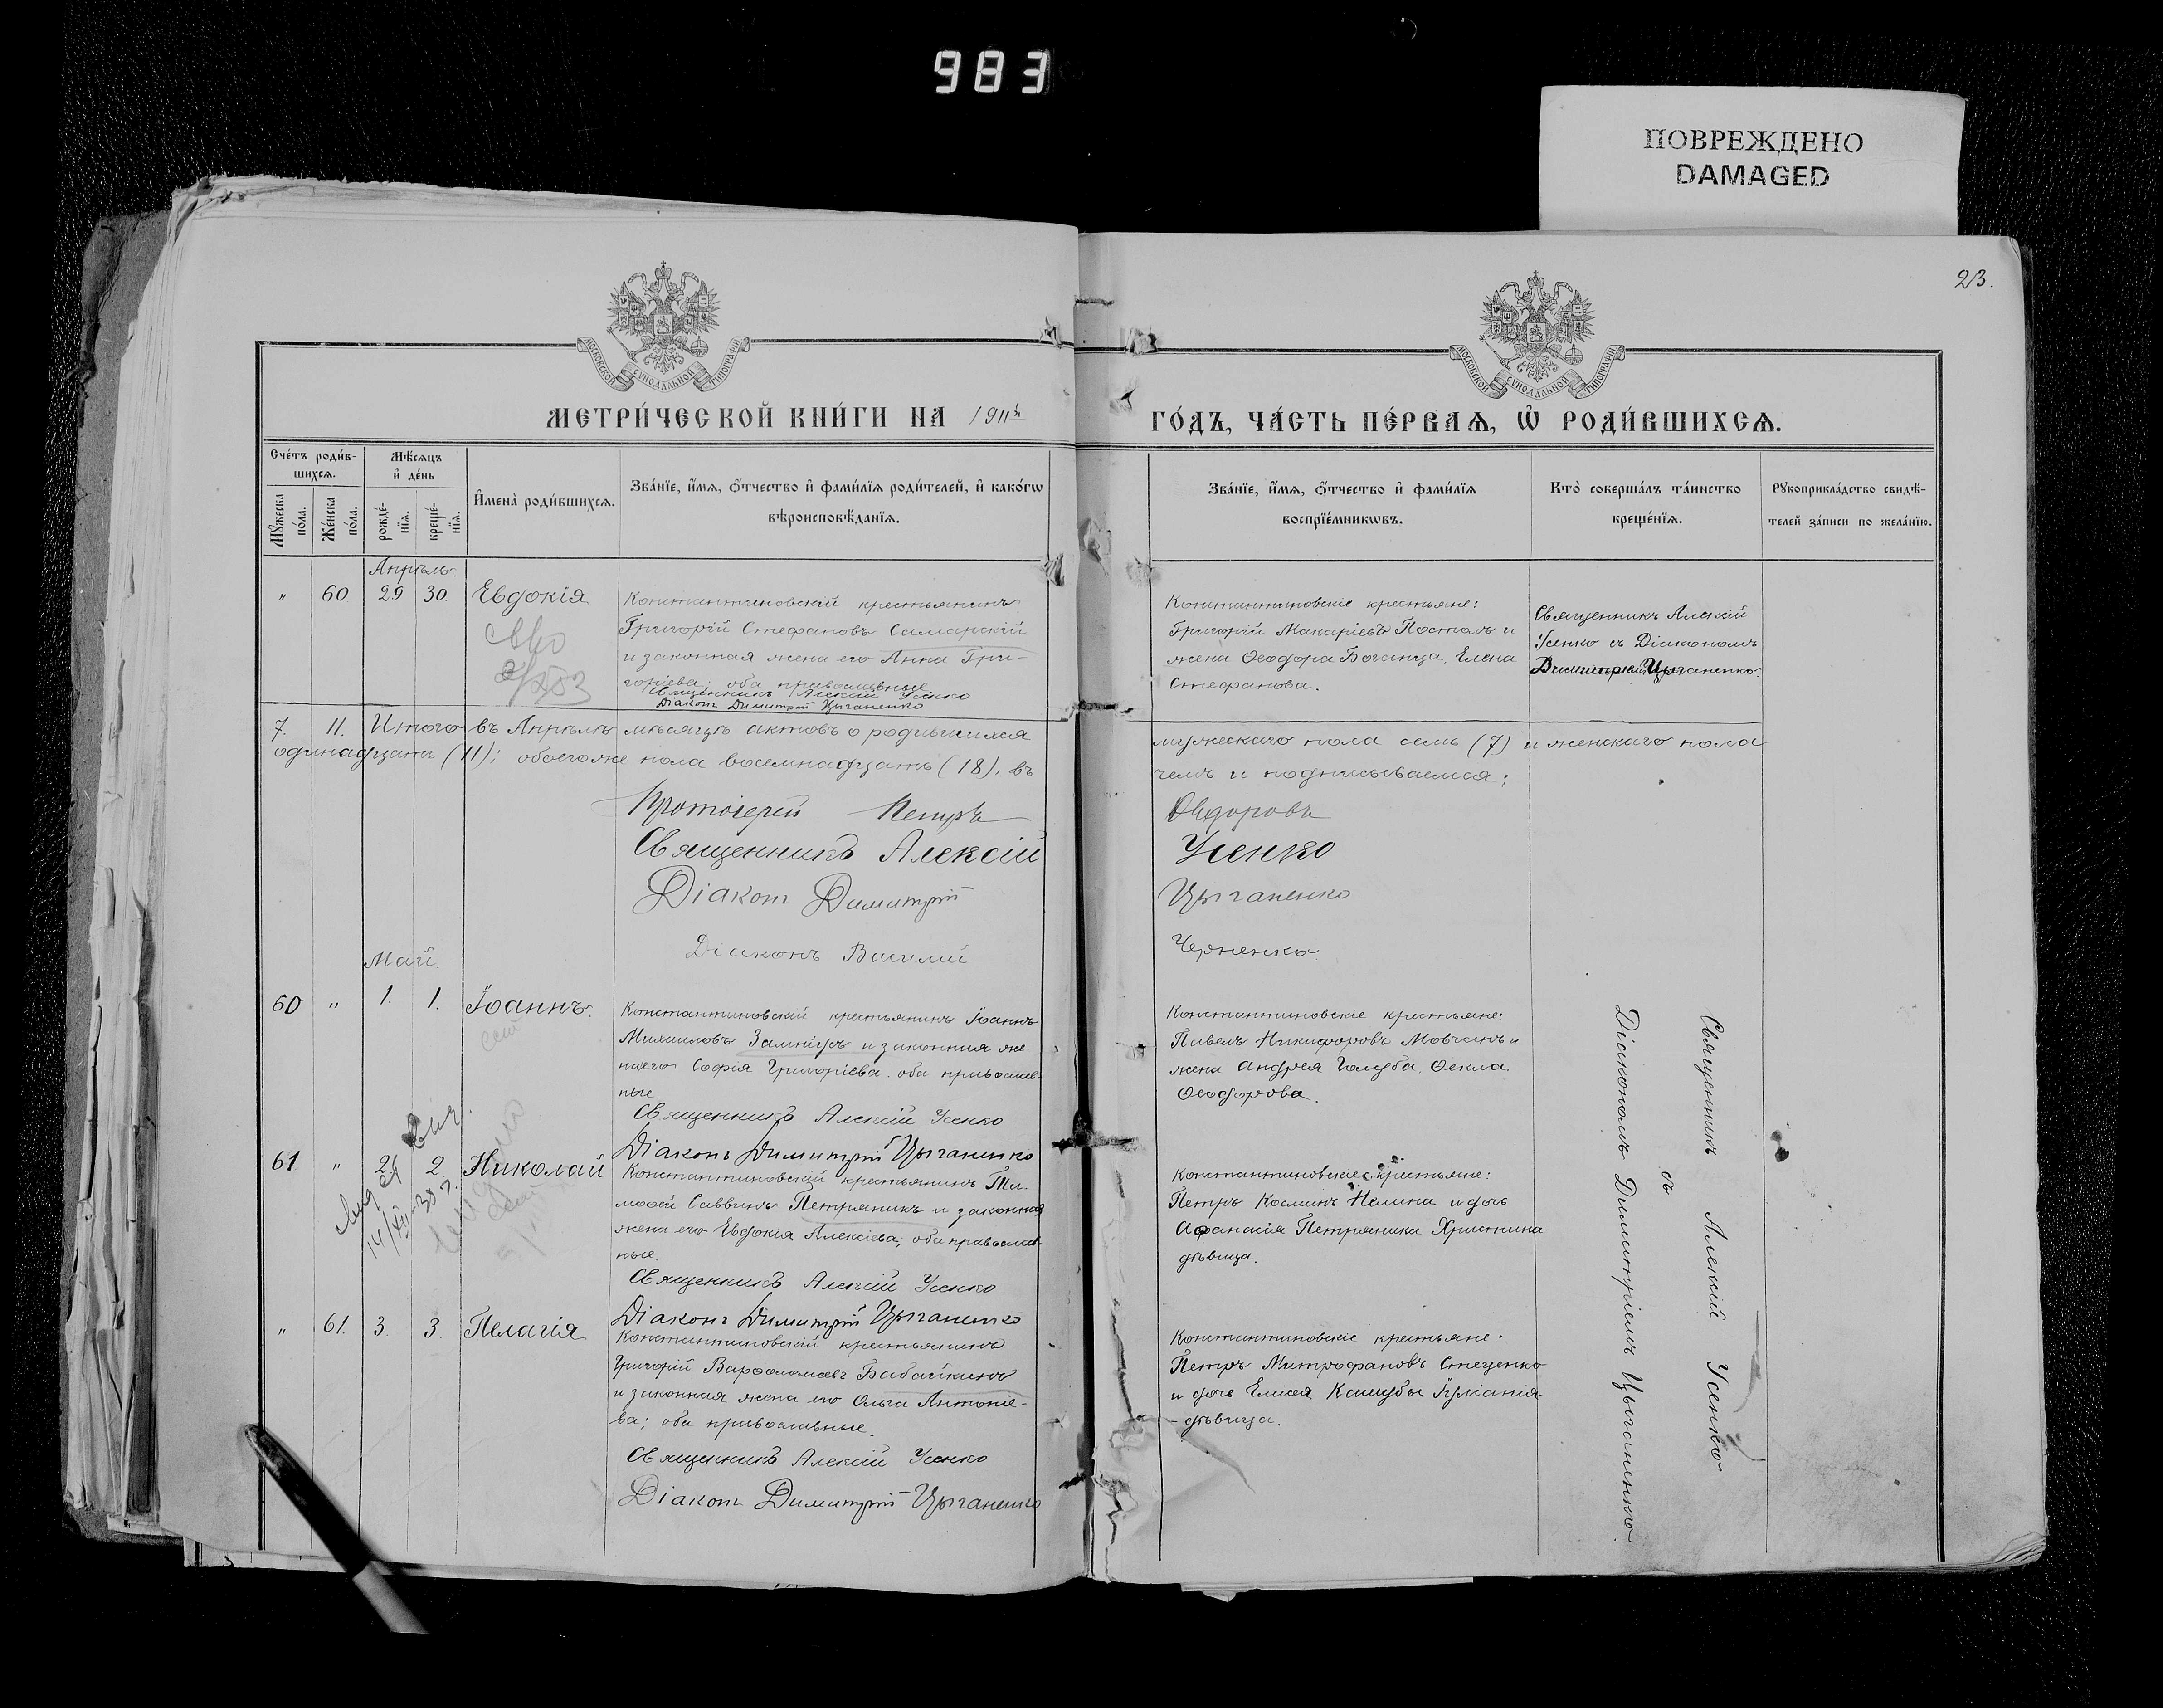 983
ПОВРЕЖДЕНО
DAMAGED
23.
МОСКОВСКОЙ СѴНОДАЛЬНОЙ ТИПОГРАФІИ
МОСКОВСКОЙ СѴНОДАЛЬНОЙ ТИПОГРАФІИ
МЕТРИ́ЧЕСКОЙ КНИ́ГИ НА 1911й
ГО́ДЪ, ЧА́СТЬ ПЕ́РВАѦ, Ѡ҆ РОДИ́ВШИХСѦ.
Сче́тъ роди́в-
шихсѧ.
Мꙋ́жеска по́ла.
Же́нска по́ла.
Мѣ́сѧцъ
и҆ де́нь
рожде́-
нїѧ.
креще́-
нїѧ.
И҆мена̀ роди́вшихсѧ.
Зва́нїе, и҆́мѧ, ѻ҆́тчество и҆ фами́лїѧ роди́телей, и҆ како́гѡ
вѣроисповѣ́данїѧ.
Зва́нїе, и҆́мѧ, ѻ҆́тчество и҆ фами́лїѧ
воспрїе́мникѡвъ.
Кто̀ соверша́лъ та́инство
креще́нїѧ.
Рꙋкоприкла́дство свидѣ́-
телей за́писи по жела́нїю.
Апрѣль.
" 60 29 30. Евдокія
Константиновскій крестьянинъ
Григорій Стефановъ Саманскій
и законная жена его Анна Гри-
горіева; оба православные
Священникъ Алексій Усенко
Діаконъ Димитрій Цыганенко
Константиновскіе крестьяне:
Григорій Макаріевъ Постолъ и
жена Ѳеодора Боганца, Елена
Стефанова.
Священникъ Алексій
Усенко съ Діакономъ
Димитріемъ Цыганенко.
7. 11. Итого въ Апрѣлѣ мѣсяцѣ актовъ о родившихся
мужескаго пола семь (7) и женскаго пола
одинадцать (11); обоегоже пола восемнадцать (18), въ
чемъ и подписываемся:
Протоіерей Петръ Ѳедоровъ
Священникъ Алексій Усенко
Діаконъ Димитрій Цыганенко
Діаконъ Василій Черненко
Май.
60 " 1. 1. Іоаннъ.
Константиновскій крестьянинъ Іоаннъ
Михаиловъ Замніусъ и законная же-
на его Софія Григоріева. оба православ-
ные.
Священникъ Алексій Усенко
Діаконъ Димитрій Цыганенко
Константиновскіе крестьяне:
Павелъ Никифоровъ Мовчанъ и
жена Андрея Голуба, Ѳекла
Ѳеодорова.
61 " 2 2 Николай
Константиновскій крестьянинъ Ти-
моѳей Саввинъ Петряникъ и законная
жена его Евдокія Алексіева; оба православ-
ные.
Священникъ Алексій Усенко
Діаконъ Димитрій Цыганенко
Константиновскіе крестьяне:
Петръ Косминъ Налина и дочь
Аѳанасія Петряника Христина-
дѣвица.
" 61. 3. 3. Пелагія
Константиновскій крестьянинъ
Григорій Варѳоломеевъ Бабайкинъ
и законная жена его Ольга Антоніе-
ва; оба православные.
Священникъ Алексій Усенко
Діаконъ Димитрій Цыганенко
Константиновскіе крестьяне:
Петръ Митрофановъ Стеценко
и дочь Елисея Кашубы Іуліанія-
-дѣвица.
Священникъ Алексій Усенко
съ
Діакономъ Димитріемъ Цыганенко.